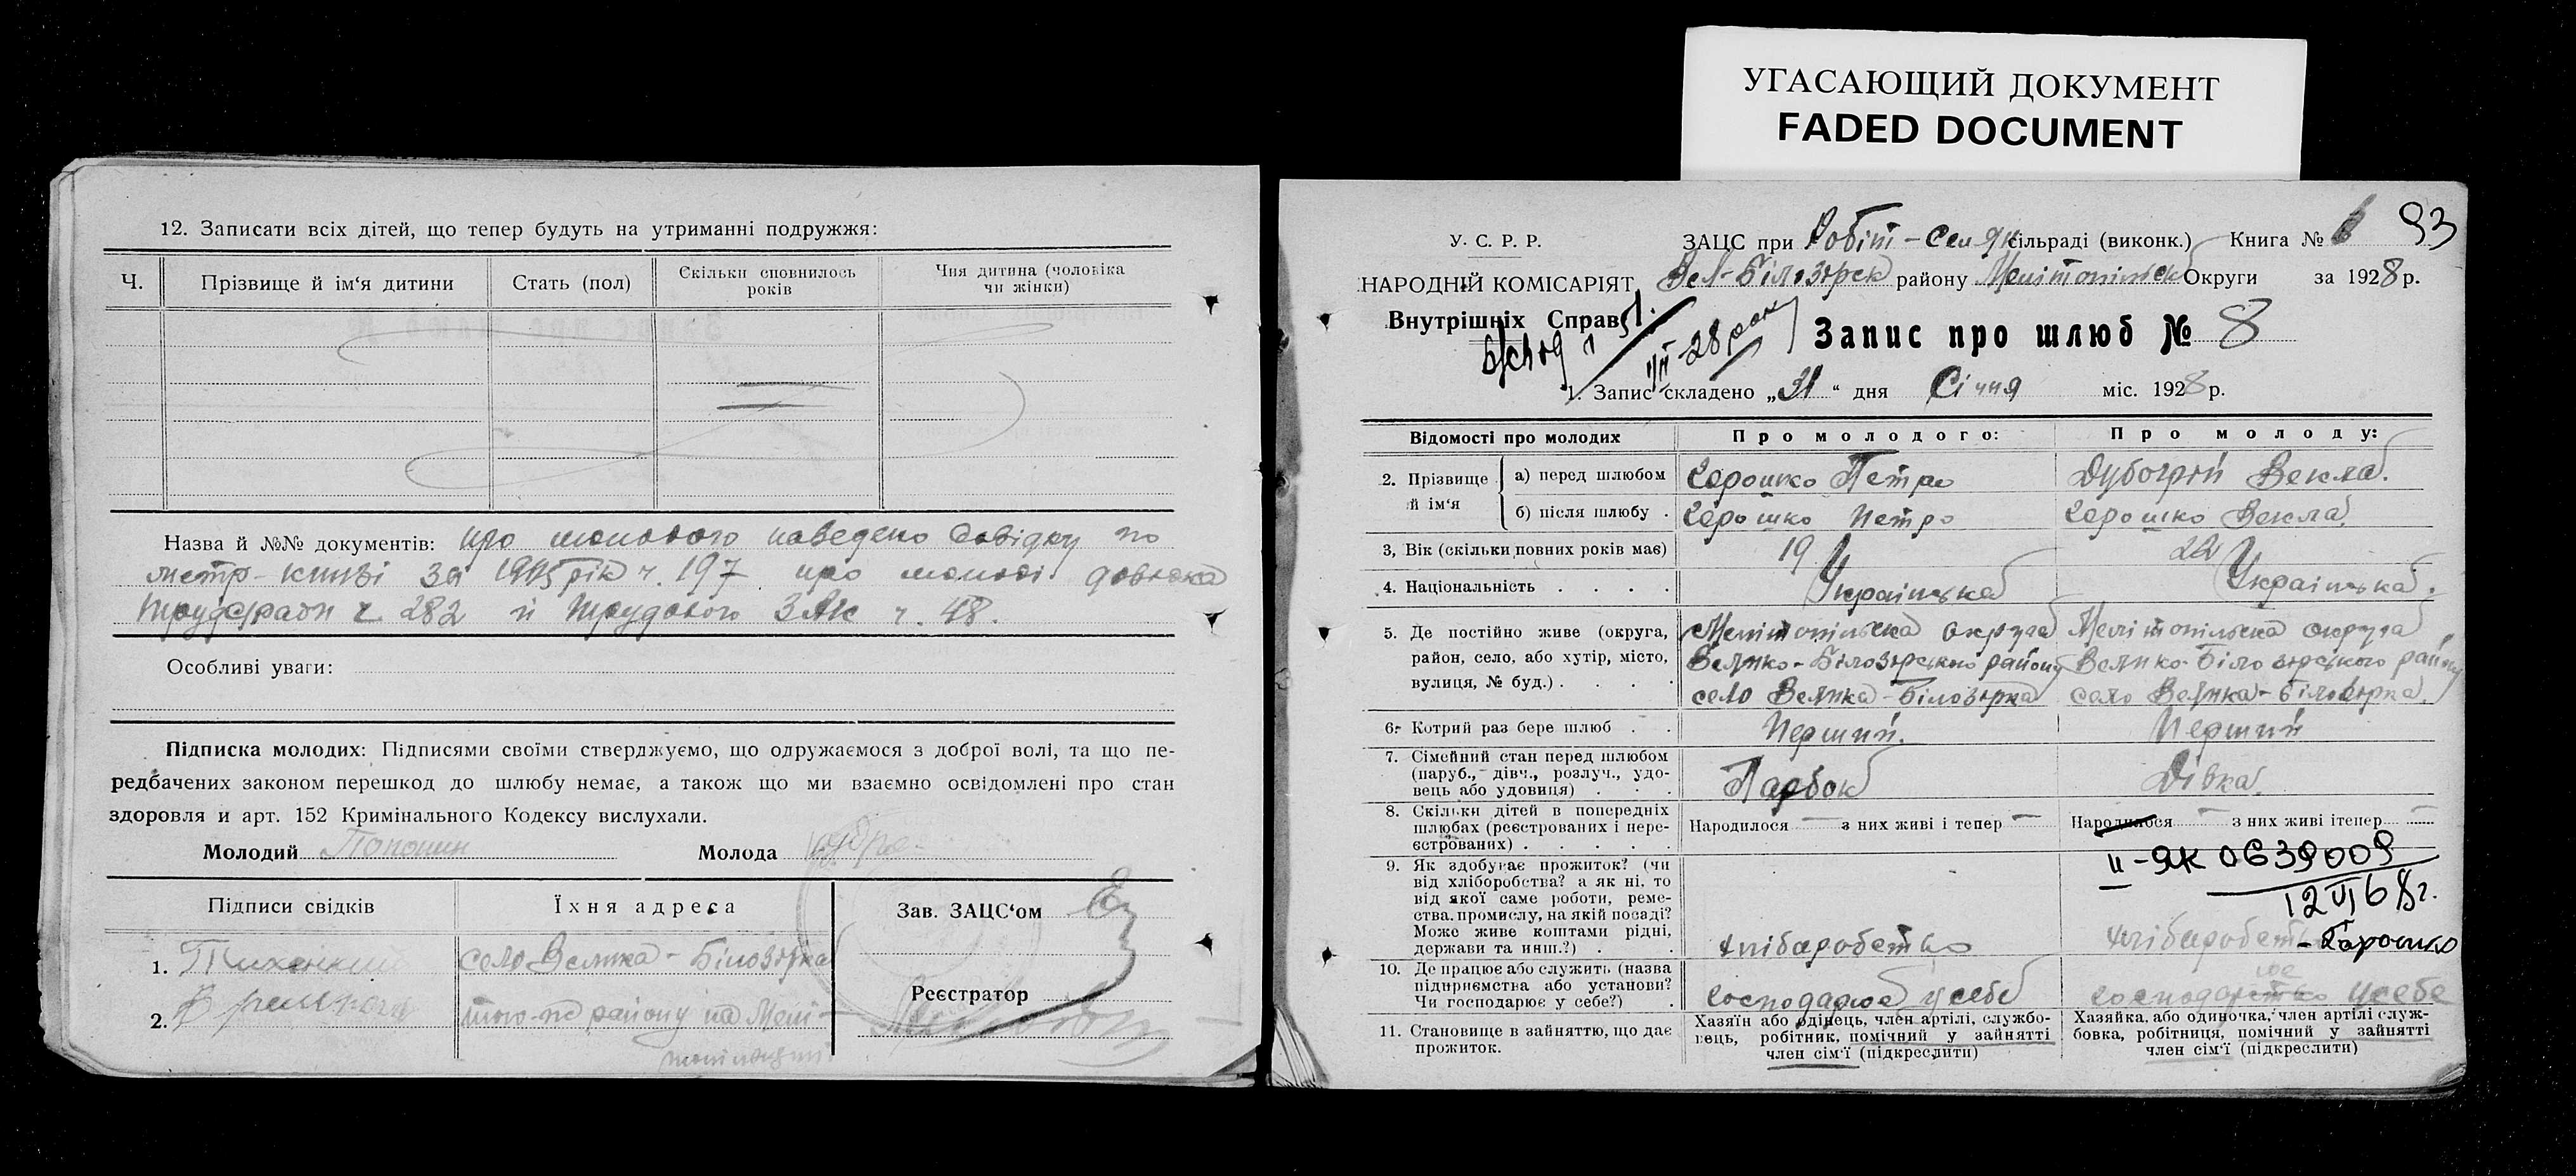 УГАСАЮЩИЙ ДОКУМЕНТ
FADED DOCUMENT
12. Записати всіх дітей, що тепер будуть на утриманні подружжя:
Ч. Прізвище й ім‘я дитини Стать (пол) Скільки сповнилось років Чия дитина (чоловіка чи жінки)
Назва й №№ документів: про молодого наведено довідку по
метр-книзі за 1905 рік ч. 197 про молоді довідка
ч 282 й Трудового ч. 48.
Особливі уваги:
Підписка молодих: Підписями своїми стверджуємо, що одружаємося з доброї волі, та що пе-
редбачених законом перешкод до шлюбу немає, а також що ми взаємно освідомлені про стан
здоров‘я и арт. 152 Кримінального Кодексу вислухали.
Молодий Молода
Підписи свідків Їхня адреса Зав. ЗАЦС‘ом
1. село Велика-Білозірка
Реєстратор
2. того-ж району на Мелі-
топільщині
У. С. Р. Р.
НАРОДНІЙ КОМІСАРІЯТ
Внутрішніх Справ
ЗАЦС при Робіт-Селян сільраді (виконк.) Книга № 93
Вел-Білозірск району Мелітопільск Округи за 1928 р.
28 року
Запис про шлюб № 8
1. Запис складено „31“ дня Січня міс. 1928 р.
Відомості про молодих Про молодого: Про молоду:
2. Прізвище й ім‘я а) перед шлюбом Горошко Петро Дубогрій Векла
б) після шлюбу Горошко Петро Горошко Векла
3, Вік (скільки повних років має) 19 22
4. Національність Українська Українська
5. Де постійно живе (округа, Мелітопільска округа Мелітопільска округа
район, село, або хутір, місто, Велико-Білозірського району Велико-Білозірського району
вулиця, № буд.) село Велика-Білозірка село Велика-Білозірка
6. Котрий раз бере шлюб Перший Перший
7. Сімейний стан перед шлюбом
(паруб., дівч., розлуч., удо-
вець або удовиця) Парубок Дівка
8. Скільки дітей в попередніх
шлюбах (реєстрованих і нере-
єстрованих) Народилося — з них живі і тепер — Народилося — з них живі ітепер —
II-ЯК 0639009
12 VI 68г.
9. Як здобуває прожиток? (чи
від хліборобства? а як ні, то
від якої саме роботи, реме-
ства, промислу, на якій посаді?
Може живе коштами рідні,
держави та инш.?) хліборобство хліборобство - Горошко
10. Де працює або служить (назва
підприємства або установи?
Чи господарює у себе?) господарює у себе господарює у себе
11. Становище в зайняттю, що дає
прожиток.
Хазяїн або одінець, член артілі, службо-
вець, робітник, помічний у зайнятті
член сім‘ї (підкреслити)
Хазяйка, або одиночка, член артілі служ-
бовка, робітниця, помічний у зайнятті
член сім‘ї (підкреслити)